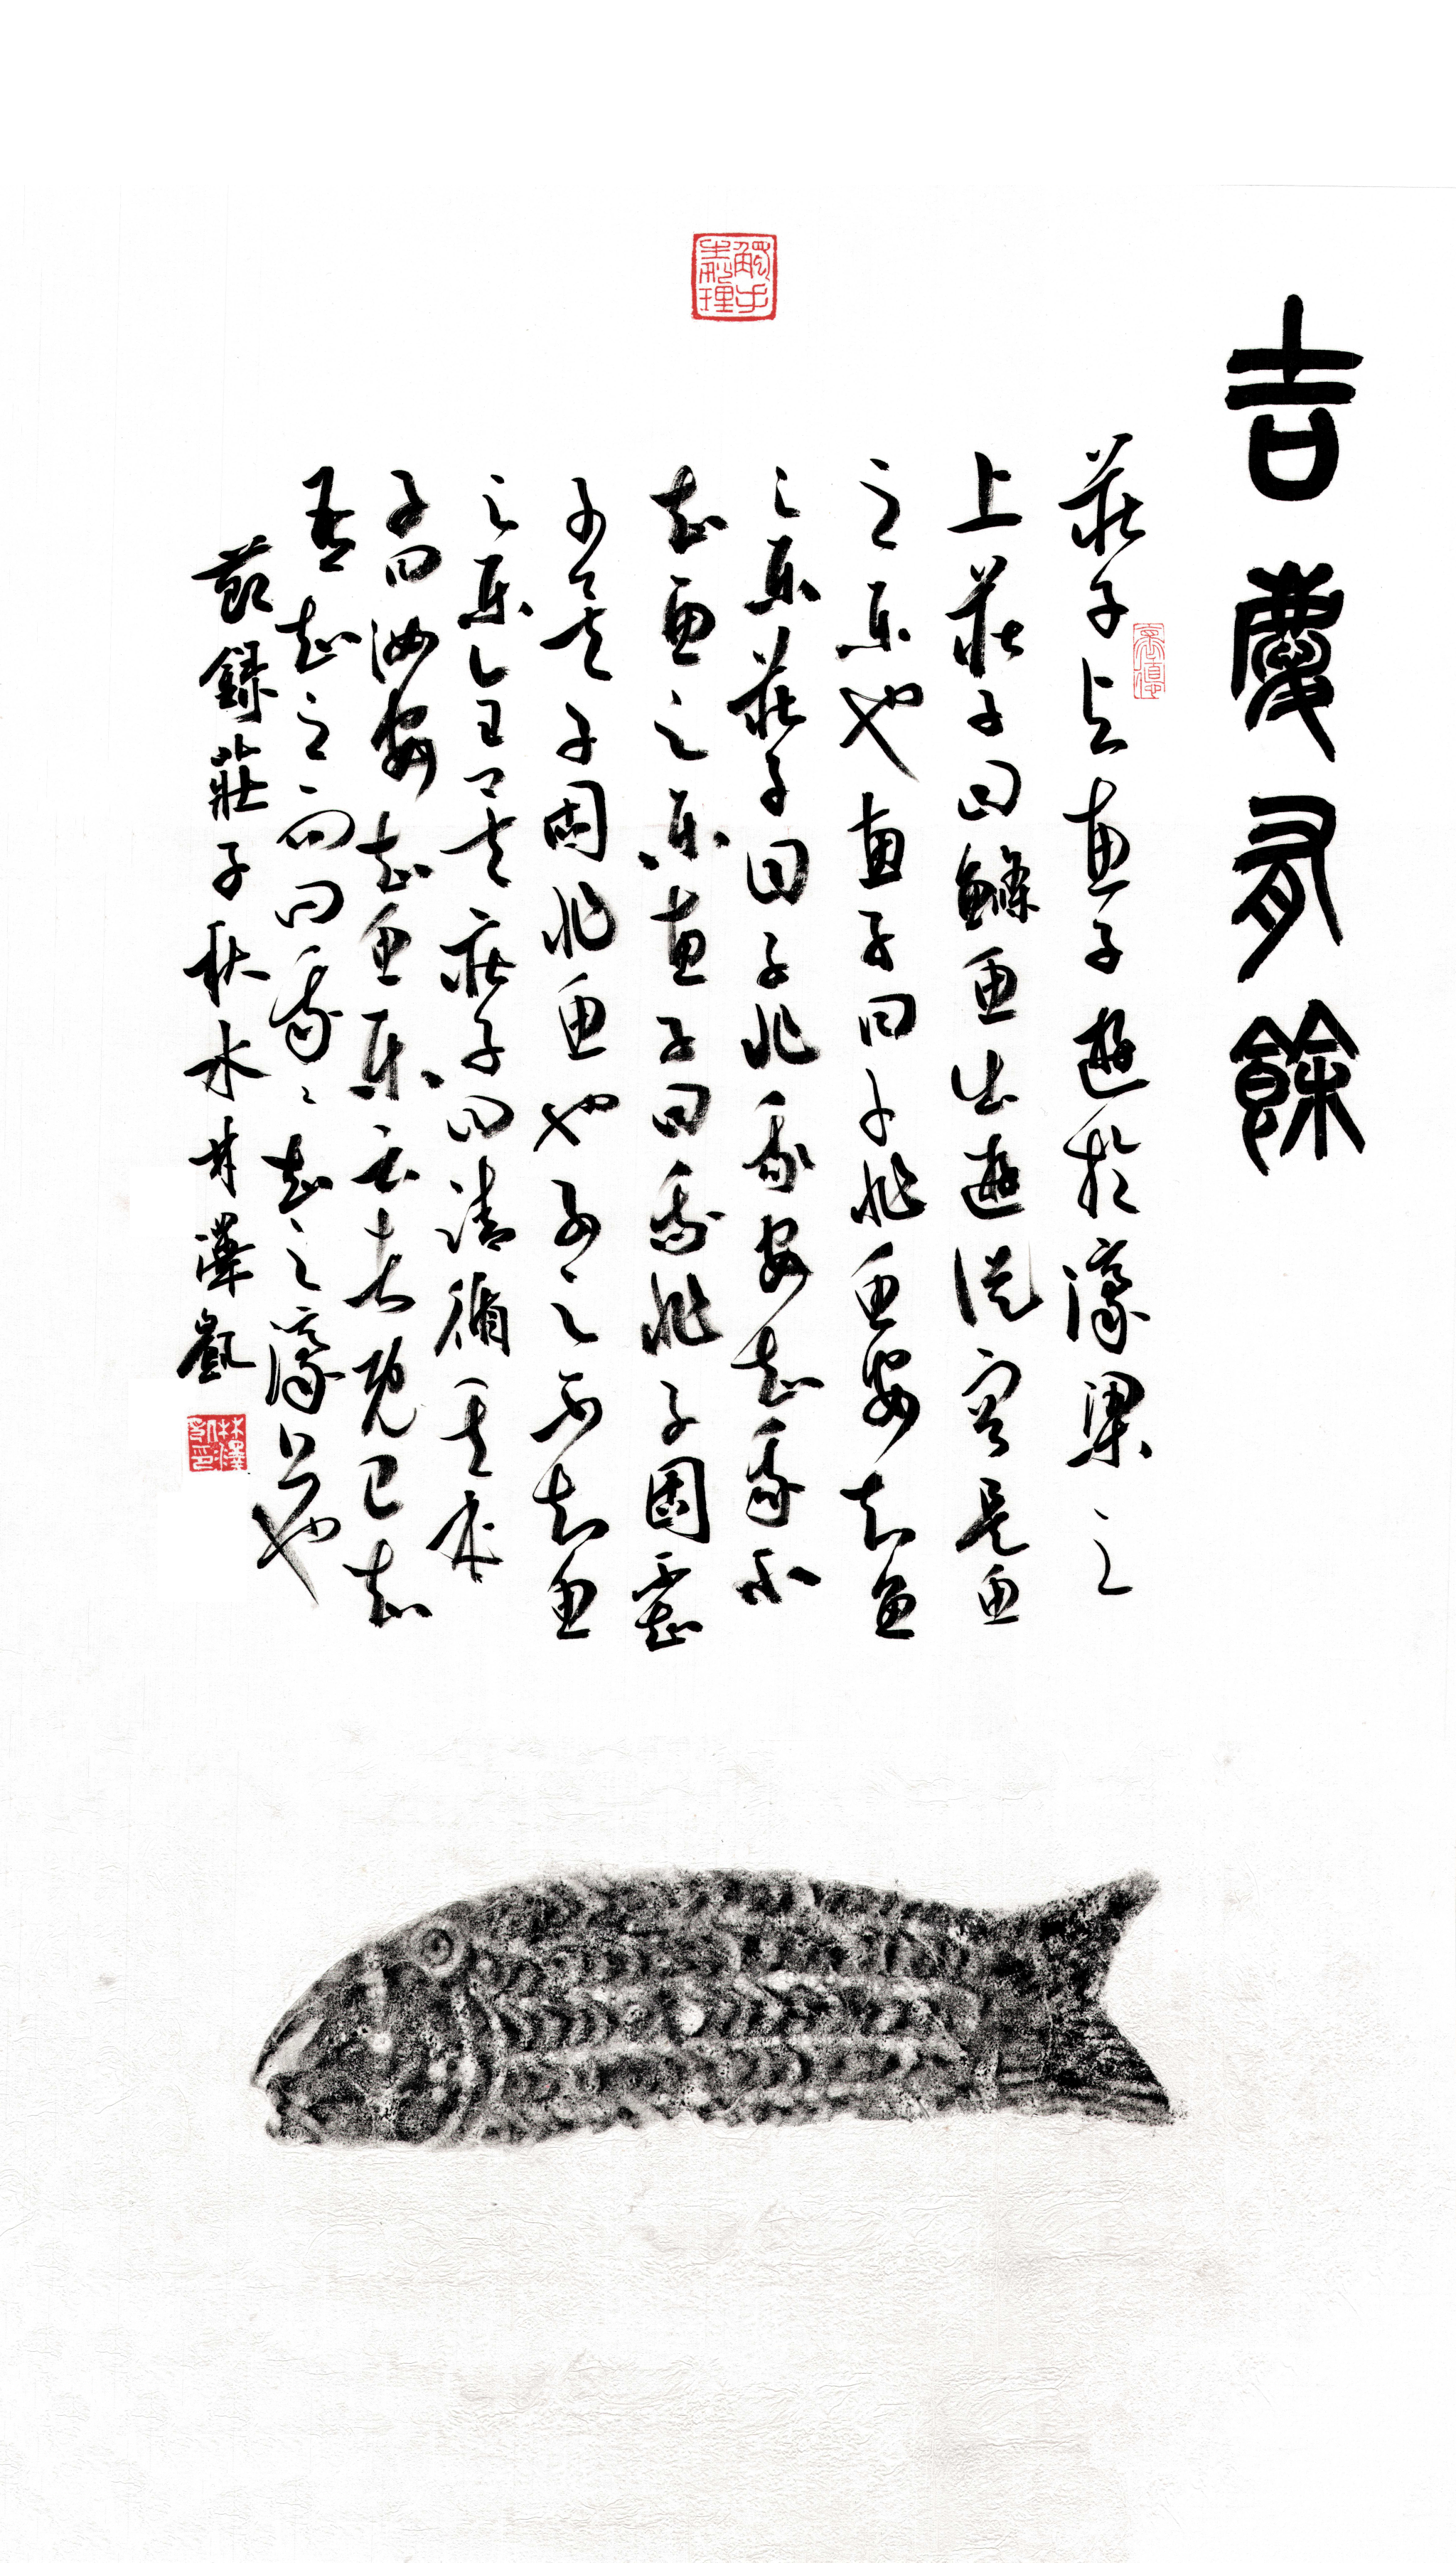 吉慶有餘
莊子与惠子遊於濠梁之
上莊子曰鯈魚出遊從容是魚
之樂也惠子曰子非魚安知魚
之樂莊子曰子非我安知我不
知魚之樂惠子曰我非子固不知
子矣子固非魚也子之不知魚
之樂全矣莊子曰請循其本
子曰汝安知魚樂云者既已知
吾知之而問我々知之濠上也
節錄莊子秋水林澤凱
林澤凱印